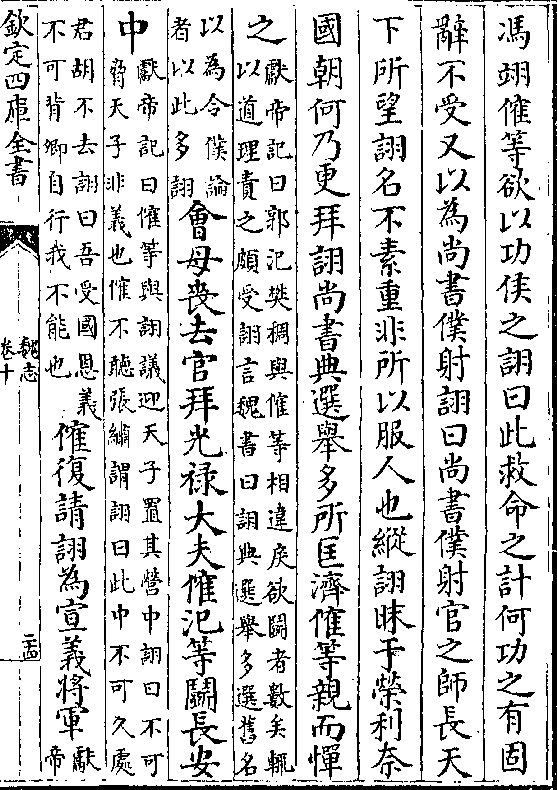 馮翊傕等欲以功侯之詡曰此救命之計何功之有固
辭不受又以為尚書僕射詡曰尚書僕射官之師長天
下所望詡名不素重非所以服人也縱詡昧于榮利奈
國朝何乃更拜詡尚書典選舉多所匡濟傕等親而憚
之獻帝記曰郭汜樊稠與傕等相違戾欲鬭者數矣輒
以道理責之頗受詡言魏書曰詡典選舉多選舊名
以為令僕論
者以此多詡會母喪去官拜光祿大夫傕汜等鬭長安
中獻帝記曰傕等與詡議迎天子置其營中詡曰不可
脅天子非義也傕不聽張繡謂詡曰此中不可久處
君胡不去詡曰吾受國恩義
不可背卿自行我不能也傕復請詡為宣義將軍獻
帝
欽定四庫全書
魏志
卷十
二十四